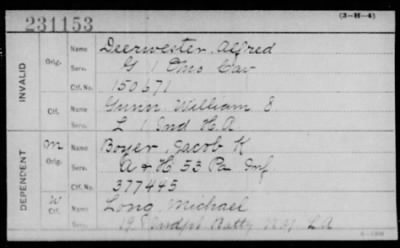 231153
(3-H-4)
INVALID
Orig. Name Deerwester, Alfred
Serv. G 1 Ohio Cav
Ctf. No. 150671
Ctf. Name Gunn, William S.
Serv. L 1 Ind H. A
DEPENDENT
M Orig. Name Boyer, Jacob K
Serv. A & H. 53 Pa Inf.
Ctf. No. 377445
W Ctf. Name Long, Michael
Serv. 19 Indpt Batty L A